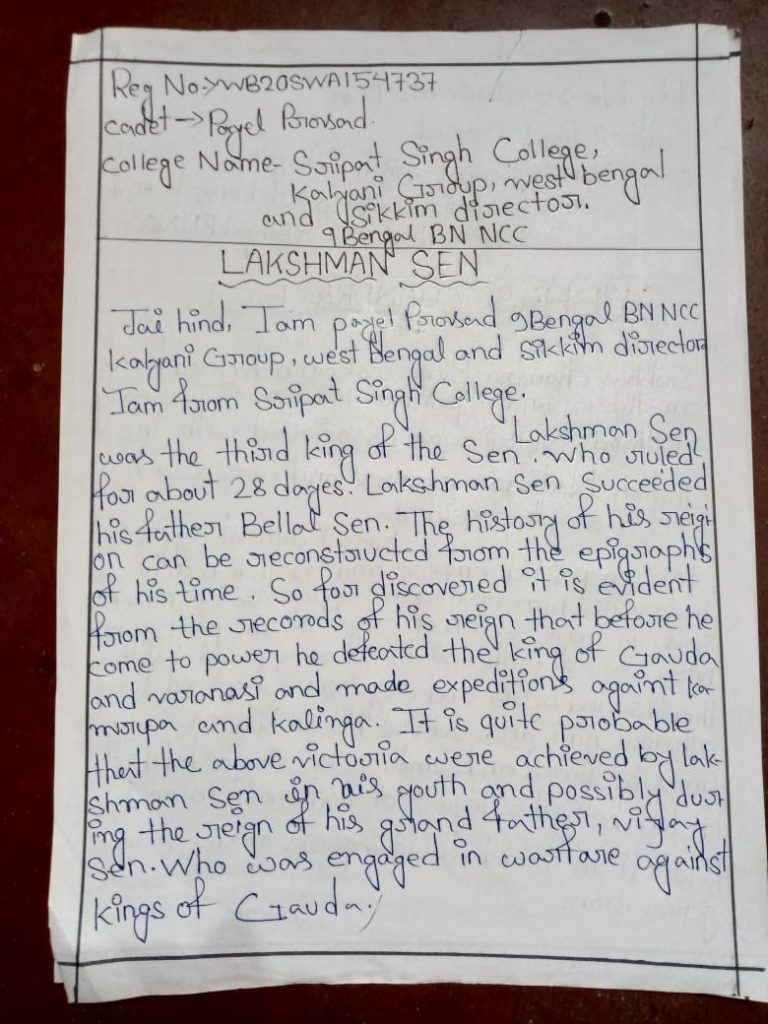 Reg No:→WB20SWA154737
cadet→Payel Prorsad.
College Name- Sripat Singh College,
Kalyani Group, west bengal
and Sikkim director.
9Bengal BN NCC
LAKSHMAN SEN
Jai hind, I am payel Prorsad 9Bengal BN NCC
Kalyani Group, west Bengal and Sikkim director
I am from Sripat Singh College.
Lakshman Sen
was the third king of the Sen. Who ruled
for about 28 dayes. Lakshman Sen Succeeded
his father Bellal Sen. The history of his reigi
on can be reconstructed from the epigraphs
of his time. So for discovered it is evident
from the records of his reign that before he
come to power he defeated the king of Gauda
and varanasi and made expeditions againt ka
mrupa and Kalinga. It is quite probable
that the above victoria were achieved by lak-
shman Sen in his youth and possibly dur
ing the reign of his grand father, vijay
Sen. Who was engaged in warfare against
kings of Gauda.